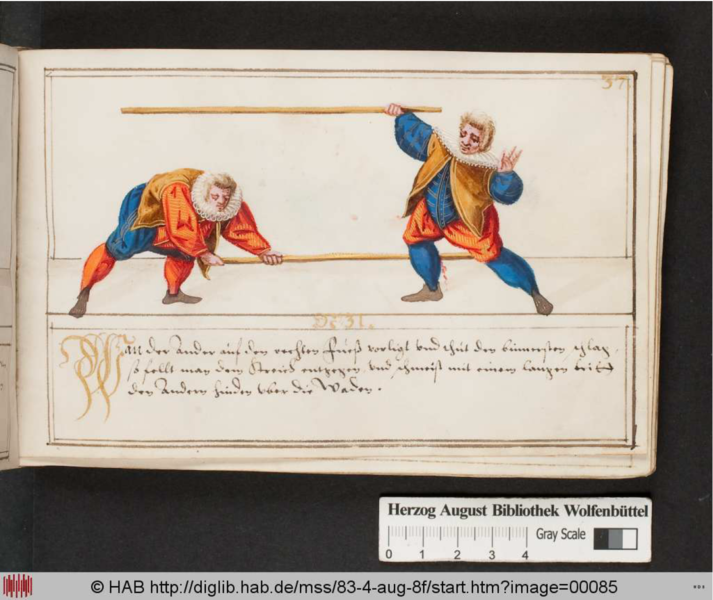 37.
DC 31.
Wan der Ander auf den rechten Fueß vorligt vnd thut den
so felt man dem Streich entgegen vnd schmeist mit einem langen tritt
den Andern hinden vber die Waden.
Herzog August Bibliothek Wolfenbüttel
Gray Scale
0 1 2 3 4
© HAB http://diglib.hab.de/mss/83-4-aug-8f/start.htm?image=00085